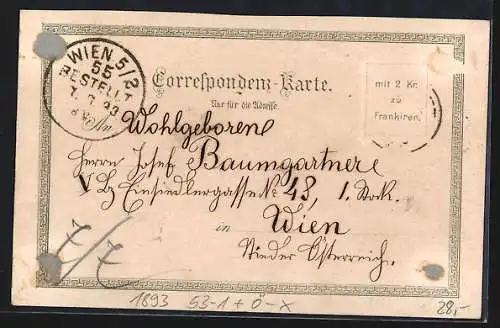 WIEN 5/2
55
BESTELLT
Correspondenz-Karte.
Nur für die Adresse.
mit 2 Kr.
zu
Frankiren.
An
Wohlgeboren
Herrn Josef Baumgartner
V Bz Einsiedlergasse No 48, 1. Stock.
in Wien
Nieder Österreich.
1893 53-1 + Ö-X
28,-